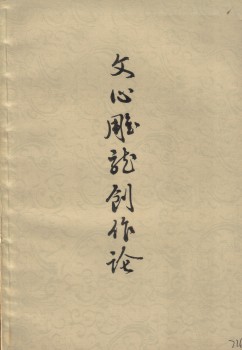 文心雕龍創作論